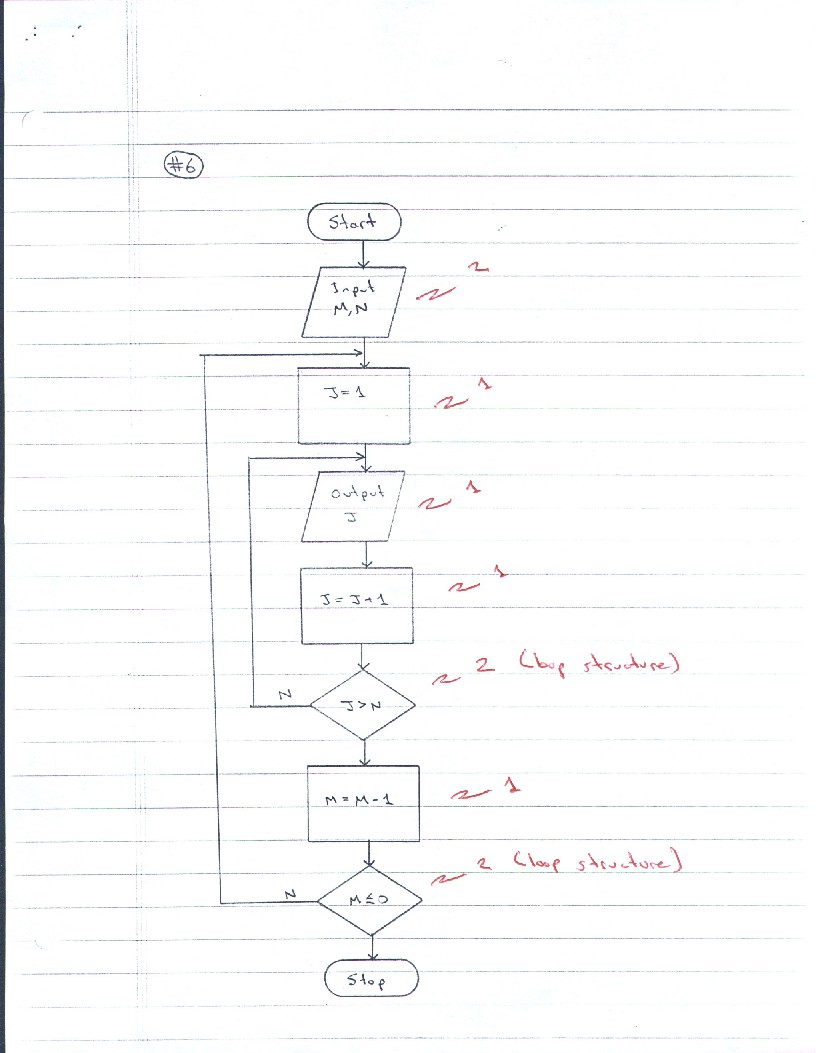 #6
Start
Input
M, N
2
J = 1
1
Output
J
1
J = J + 1
1
2 (loop structure)
N
J > N
M = M - 1
1
2 (loop structure)
N
M ≤ 0
Stop